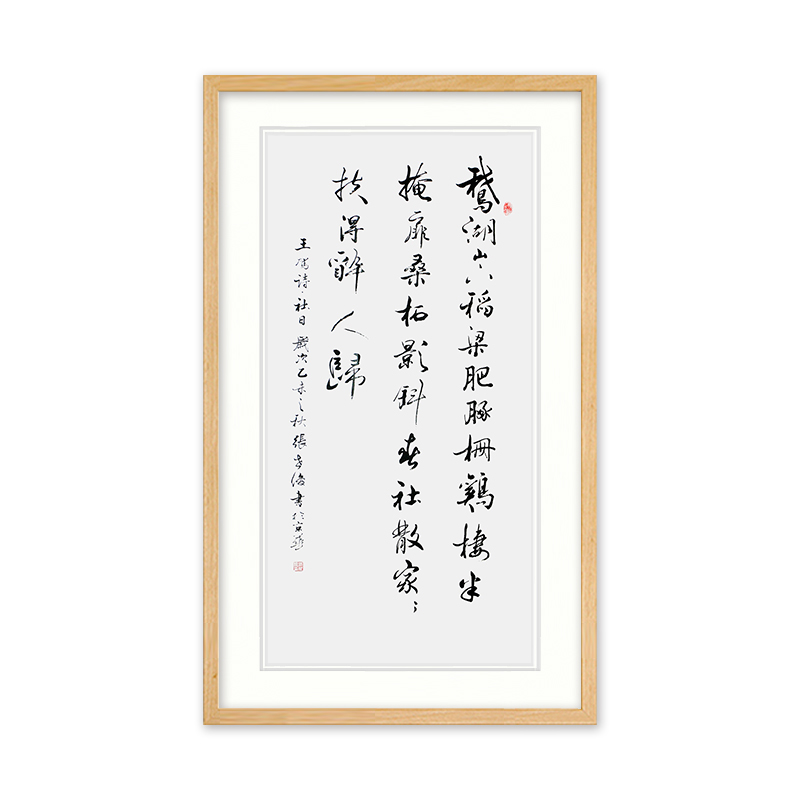 鵞湖山下稻梁肥豚栅鷄棲半
掩扉桑柘影斜春社散家々
扶得醉人歸
王駕詩·社日 歲次乙未之秋 張 書於京華